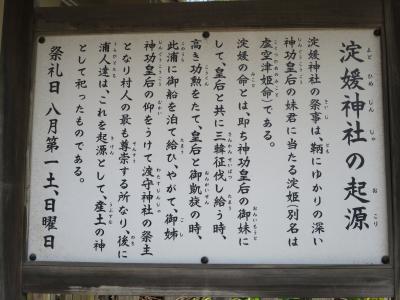 淀媛神社の起源
淀媛神社の祭事は、鞆にゆかりの深い
神功皇后の妹君に当たる淀姫(別名は
虚空津姫命)である。
淀媛の命とは、即ち神功皇后の御妹に
して、皇后と共に三韓征伐し給う時、
高き功勲をたて、皇后と御凱旋の時、
此浦に御船を泊て給ひ、やがて、御姉
神功皇后の仰をうけて渡守神社の祭主
となり村人の最も尊崇する所なり、後に
浦人達は、これを起源として、産土の神
として祀ったものである。
祭礼日 八月第一土、日曜日